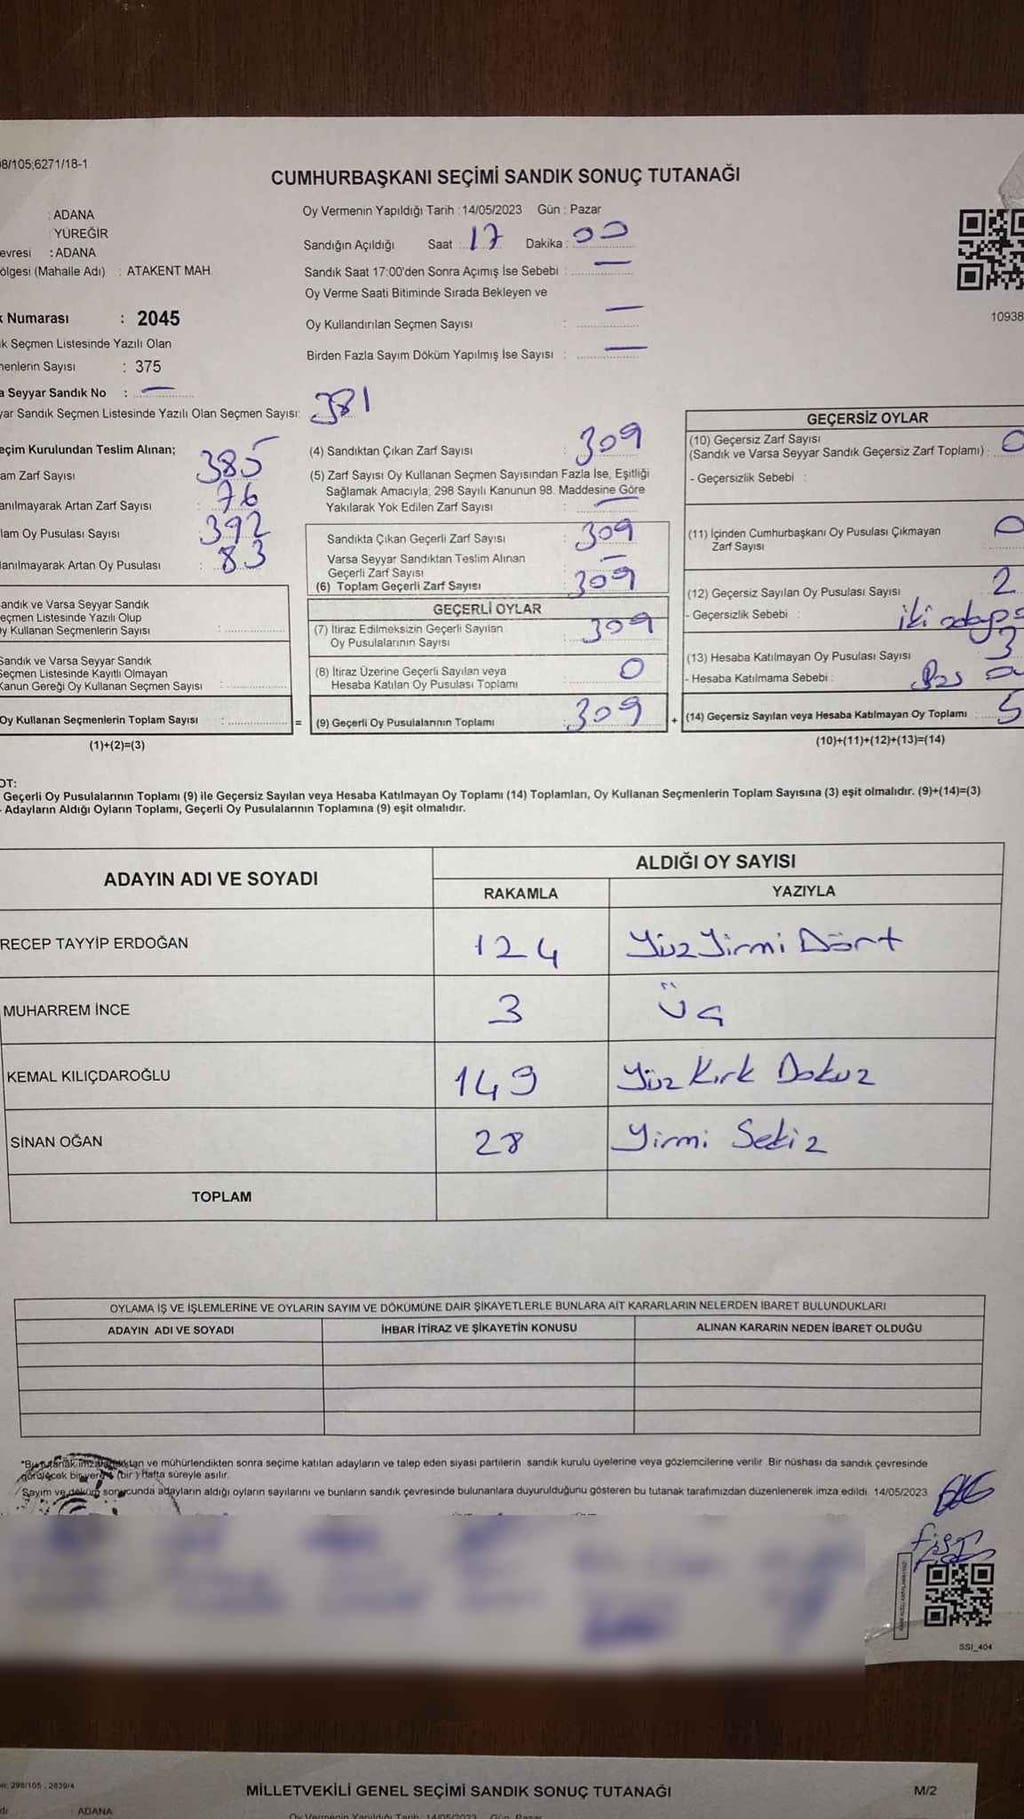 98/105;6271/18-1
CUMHURBAŞKANI SEÇİMİ SANDIK SONUÇ TUTANAĞI
: ADANA
YÜREĞİR
evresi : ADANA
ölgesi (Mahalle Adı) : ATAKENT MAH
Oy Vermenin Yapıldığı Tarih : 14/05/2023 Gün : Pazar
Sandığın Açıldığı Saat : 17 Dakika : 00
Sandık Saat 17:00'den Sonra Açımış İse Sebebi : —
Oy Verme Saati Bitiminde Sırada Bekleyen ve
Oy Kullandırılan Seçmen Sayısı : —
Birden Fazla Sayım Döküm Yapılmış İse Sayısı : —
10938
k Numarası : 2045
ık Seçmen Listesinde Yazılı Olan
menlerin Sayısı : 375
a Seyyar Sandık No : —
yar Sandık Seçmen Listesinde Yazılı Olan Seçmen Sayısı: 381
eçim Kurulundan Teslim Alınan;
am Zarf Sayısı : 385
anılmayarak Artan Zarf Sayısı : 76
lam Oy Pusulası Sayısı : 392
lanılmayarak Artan Oy Pusulası : 83
andık ve Varsa Seyyar Sandık
eçmen Listesinde Yazılı Olup
y Kullanan Seçmenlerin Sayısı :
Sandık ve Varsa Seyyar Sandık
Seçmen Listesinde Kayıtlı Olmayan
Kanun Gereği Oy Kullanan Seçmen Sayısı :
Oy Kullanan Seçmenlerin Toplam Sayısı : =
(1)+(2)=(3)
(4) Sandıktan Çıkan Zarf Sayısı : 309
(5) Zarf Sayısı Oy Kullanan Seçmen Sayısından Fazla İse, Eşitliği
Sağlamak Amacıyla; 298 Sayılı Kanunun 98. Maddesine Göre
Yakılarak Yok Edilen Zarf Sayısı : —
Sandıkta Çıkan Geçerli Zarf Sayısı : 309
Varsa Seyyar Sandıktan Teslim Alınan
Geçerli Zarf Sayısı : —
(6) Toplam Geçerli Zarf Sayısı : 309
GEÇERLİ OYLAR
(7) İtiraz Edilmeksizin Geçerli Sayılan
Oy Pusulalarının Sayısı : 309
(8) İtiraz Üzerine Geçerli Sayılan veya
Hesaba Katılan Oy Pusulası Toplamı : 0
(9) Geçerli Oy Pusulalarının Toplamı : 309 +
GEÇERSİZ OYLAR
(10) Geçersiz Zarf Sayısı
(Sandık ve Varsa Seyyar Sandık Geçersiz Zarf Toplamı) : 0
- Geçersizlik Sebebi :
(11) İçinden Cumhurbaşkanı Oy Pusulası Çıkmayan
Zarf Sayısı : 0
(12) Geçersiz Sayılan Oy Pusulası Sayısı : 2
- Geçersizlik Sebebi : iki
(13) Hesaba Katılmayan Oy Pusulası Sayısı : 3
- Hesaba Katılmama Sebebi :
(14) Geçersiz Sayılan veya Hesaba Katılmayan Oy Toplamı : 5
(10)+(11)+(12)+(13)=(14)
OT:
Geçerli Oy Pusulalarının Toplamı (9) ile Geçersiz Sayılan veya Hesaba Katılmayan Oy Toplamı (14) Toplamları, Oy Kullanan Seçmenlerin Toplam Sayısına (3) eşit olmalıdır. (9)+(14)=(3)
- Adayların Aldığı Oyların Toplamı, Geçerli Oy Pusulalarının Toplamına (9) eşit olmalıdır.
ADAYIN ADI VE SOYADI ALDIĞI OY SAYISI
RAKAMLA YAZIYLA
RECEP TAYYİP ERDOĞAN 124 Yüz Yirmi Dört
MUHARREM İNCE 3 Üç
KEMAL KILIÇDAROĞLU 149 Yüz Kırk Dokuz
SİNAN OĞAN 28 Yirmi Sekiz
TOPLAM
OYLAMA İŞ VE İŞLEMLERİNE VE OYLARIN SAYIM VE DÖKÜMÜNE DAİR ŞİKAYETLERLE BUNLARA AİT KARARLARIN NELERDEN İBARET BULUNDUKLARI
ADAYIN ADI VE SOYADI İHBAR İTİRAZ VE ŞİKAYETİN KONUSU ALINAN KARARIN NEDEN İBARET OLDUĞU
*Bu tutanak mühürlendikten sonra seçime katılan adayların ve talep eden siyasi partilerin sandık kurulu üyelerine veya gözlemcilerine verilir. Bir nüshası da sandık çevresinde
görülecek bir yere (bir) hafta süreyle asılır.
Sayım ve döküm sonucunda adayların aldığı oyların sayılarını ve bunların sandık çevresinde bulunanlara duyurulduğunu gösteren bu tutanak tarafımızdan düzenlenerek imza edildi. 14/05/2023
SSI_404
298/105 ; 2839/4
MİLLETVEKİLİ GENEL SEÇİMİ SANDIK SONUÇ TUTANAĞI
M/2
: ADANA
Oy Vermenin Yapıldığı Tarih : 14/05/2023 Gün : Pazar